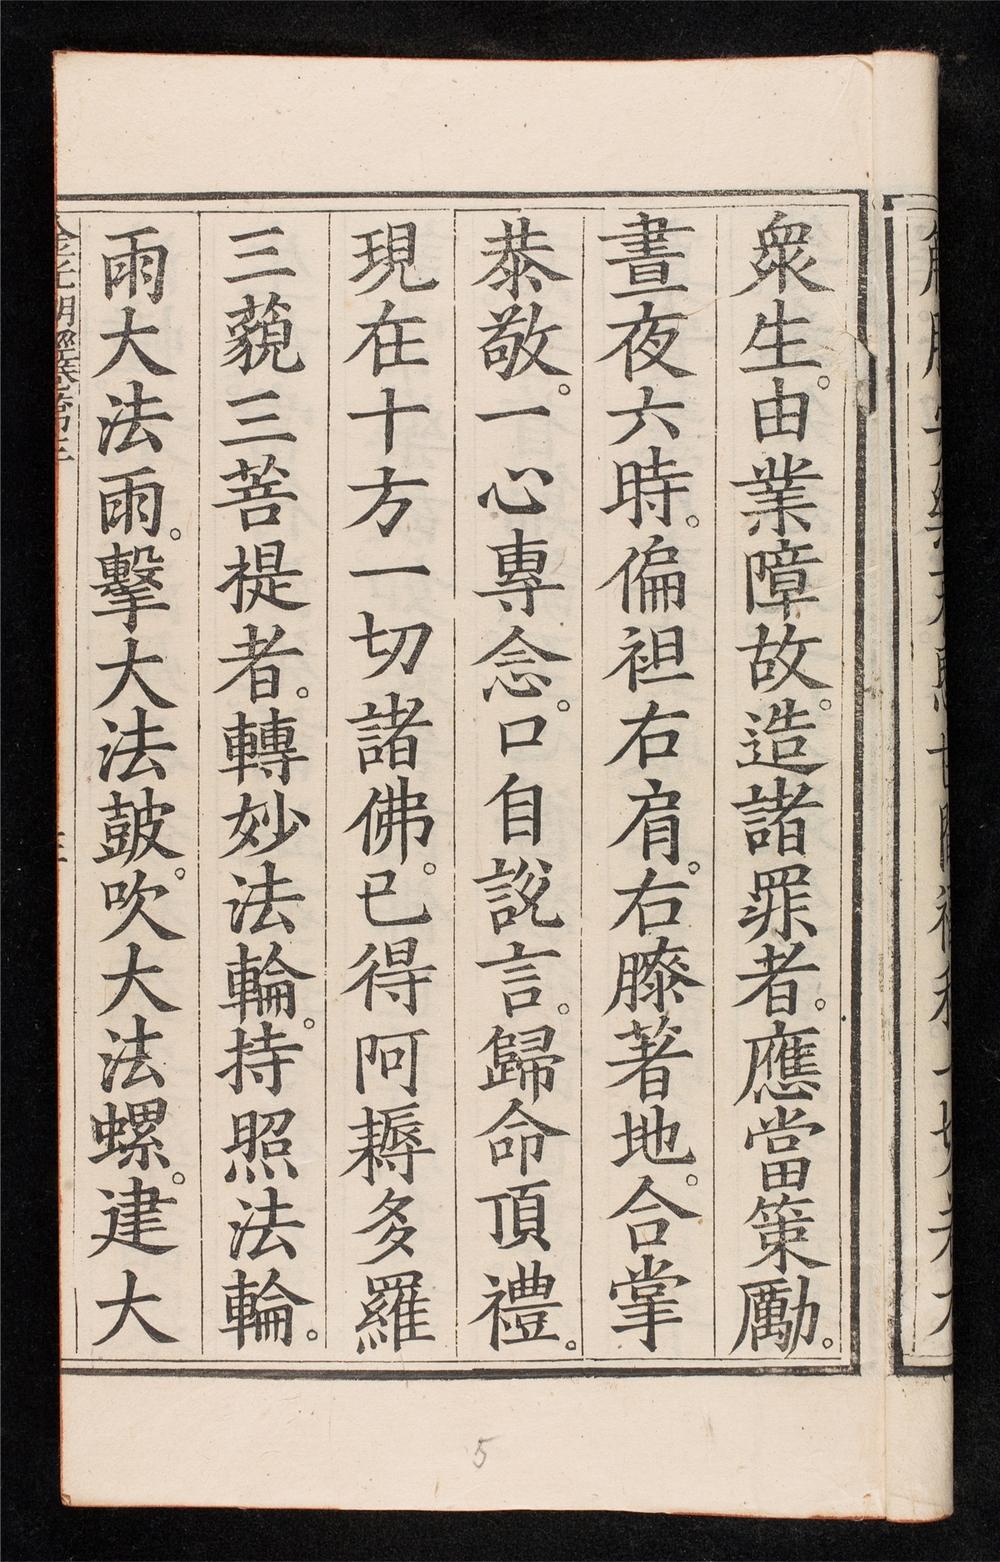 衆生。由業障故。造諸罪者。應當策勵。
晝夜六時。偏袒右肩。右膝著地。合掌
恭敬。一心專念。口自說言。歸命頂禮。
現在十方一切諸佛。已得阿耨多羅
三藐三菩提者。轉妙法輪。持照法輪。
雨大法雨。擊大法鼓。吹大法螺。建大
5